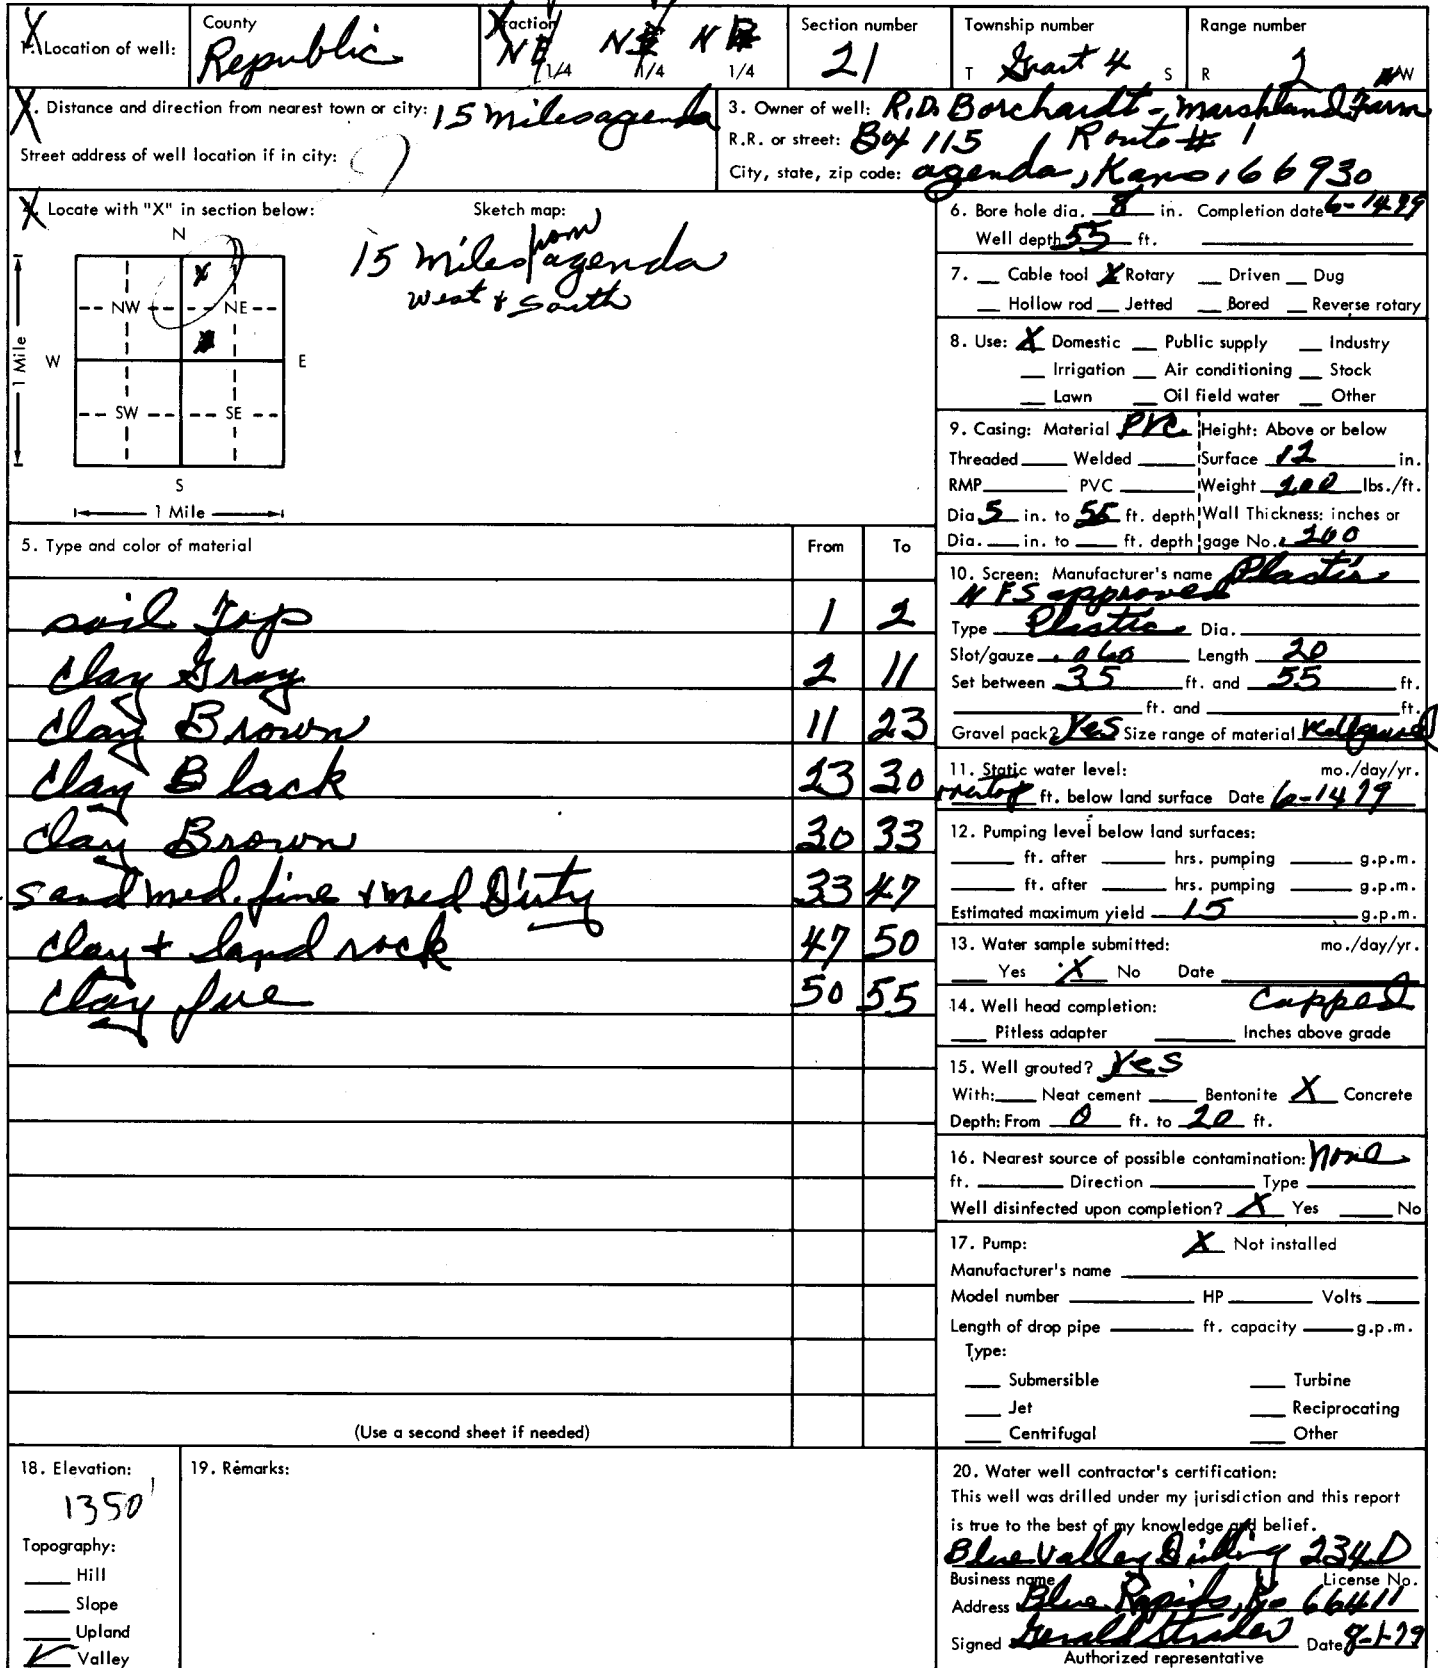 1. Location of well:
County
Republic
Fraction
NE 1/4 N 1/4 N 1/4
Section number
21
Township number
T Grant 4 S
Range number
R 2 W
2. Distance and direction from nearest town or city: 15 miles agenda
Street address of well location if in city:
3. Owner of well: R.D. Borchardt - Marshland Farm
R.R. or street: Box 115 Route # 1
City, state, zip code: agenda, Kans, 66930
4. Locate with "X" in section below:
N
X
NW NE
W E
SW SE
S
1 Mile
1 Mile
Sketch map:
15 miles from agenda
West & South
5. Type and color of material From To
soil Top 1 2
Clay Gray 2 11
Clay Brown 11 23
Clay Black 23 30
Clay Brown 30 33
Sand med. fine & med Dirty 33 47
Clay & Sand rock 47 50
Clay 50 55
(Use a second sheet if needed)
6. Bore hole dia. 8 in. Completion date 6-14-79
Well depth 55 ft.
7. Cable tool X Rotary Driven Dug
Hollow rod Jetted Bored Reverse rotary
8. Use: X Domestic Public supply Industry
Irrigation Air conditioning Stock
Lawn Oil field water Other
9. Casing: Material PVC Height: Above or below
Threaded Welded Surface 12 in.
RMP PVC Weight 200 lbs./ft.
Dia 5 in. to 55 ft. depth Wall Thickness: inches or
Dia. in. to ft. depth gage No. 200
10. Screen: Manufacturer's name Plastic
NFS approved
Type Plastic Dia.
Slot/gauze .060 Length 20
Set between 35 ft. and 55 ft.
ft. and ft.
Gravel pack? Yes Size range of material
11. Static water level: mo./day/yr.
ft. below land surface Date 6-14 79
12. Pumping level below land surfaces:
ft. after hrs. pumping g.p.m.
ft. after hrs. pumping g.p.m.
Estimated maximum yield 15 g.p.m.
13. Water sample submitted: mo./day/yr.
Yes X No Date
14. Well head completion: Capped
Pitless adapter Inches above grade
15. Well grouted? Yes
With: Neat cement Bentonite X Concrete
Depth: From 0 ft. to 20 ft.
16. Nearest source of possible contamination: none
ft. Direction Type
Well disinfected upon completion? X Yes No
17. Pump: X Not installed
Manufacturer's name
Model number HP Volts
Length of drop pipe ft. capacity g.p.m.
Type:
Submersible Turbine
Jet Reciprocating
Centrifugal Other
18. Elevation:
1350'
Topography:
Hill
Slope
Upland
Valley
19. Remarks:
20. Water well contractor's certification:
This well was drilled under my jurisdiction and this report
is true to the best of my knowledge and belief.
Blue Valley Drilling 234D
Business name License No.
Address Blue Rapids, Ks 66411
Signed Gerald Strader Date 8-1-79
Authorized representative